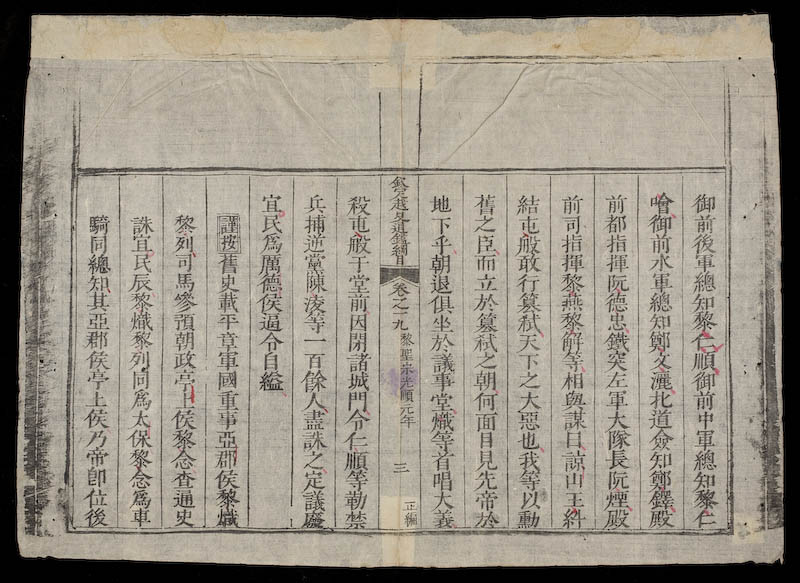 御前後軍總知黎仁順御前中軍總知黎仁
噲御前水軍總知鄭文灑北道僉知鄭鐸殿
前都指揮阮德忠鐵突左軍大隊長阮煙殿
前司指揮黎燕黎解等相與謀曰諒山王糾
結屯般敢行篡弑天下之大惡也我等以勳
舊之臣而立於篡弑之朝何面目見先帝於
地下乎朝退俱坐於議事堂熾等首唱大義
欽定越史通鑑綱目 卷之十九 黎聖宗光順元年 三 正編
殺屯般于堂前因閉諸城門令仁順等勒禁
兵捕逆黨陳淩等一百餘人盡誅之定議廢
宜民爲厲德侯逼令自縊
謹按舊史載平章軍國重事亞郡侯黎熾
黎列司馬參預朝政亭上侯黎念查通史
誅宜民辰黎熾黎列同爲太保黎念爲車
騎同總知其亞郡侯亭上侯乃帝卽位後